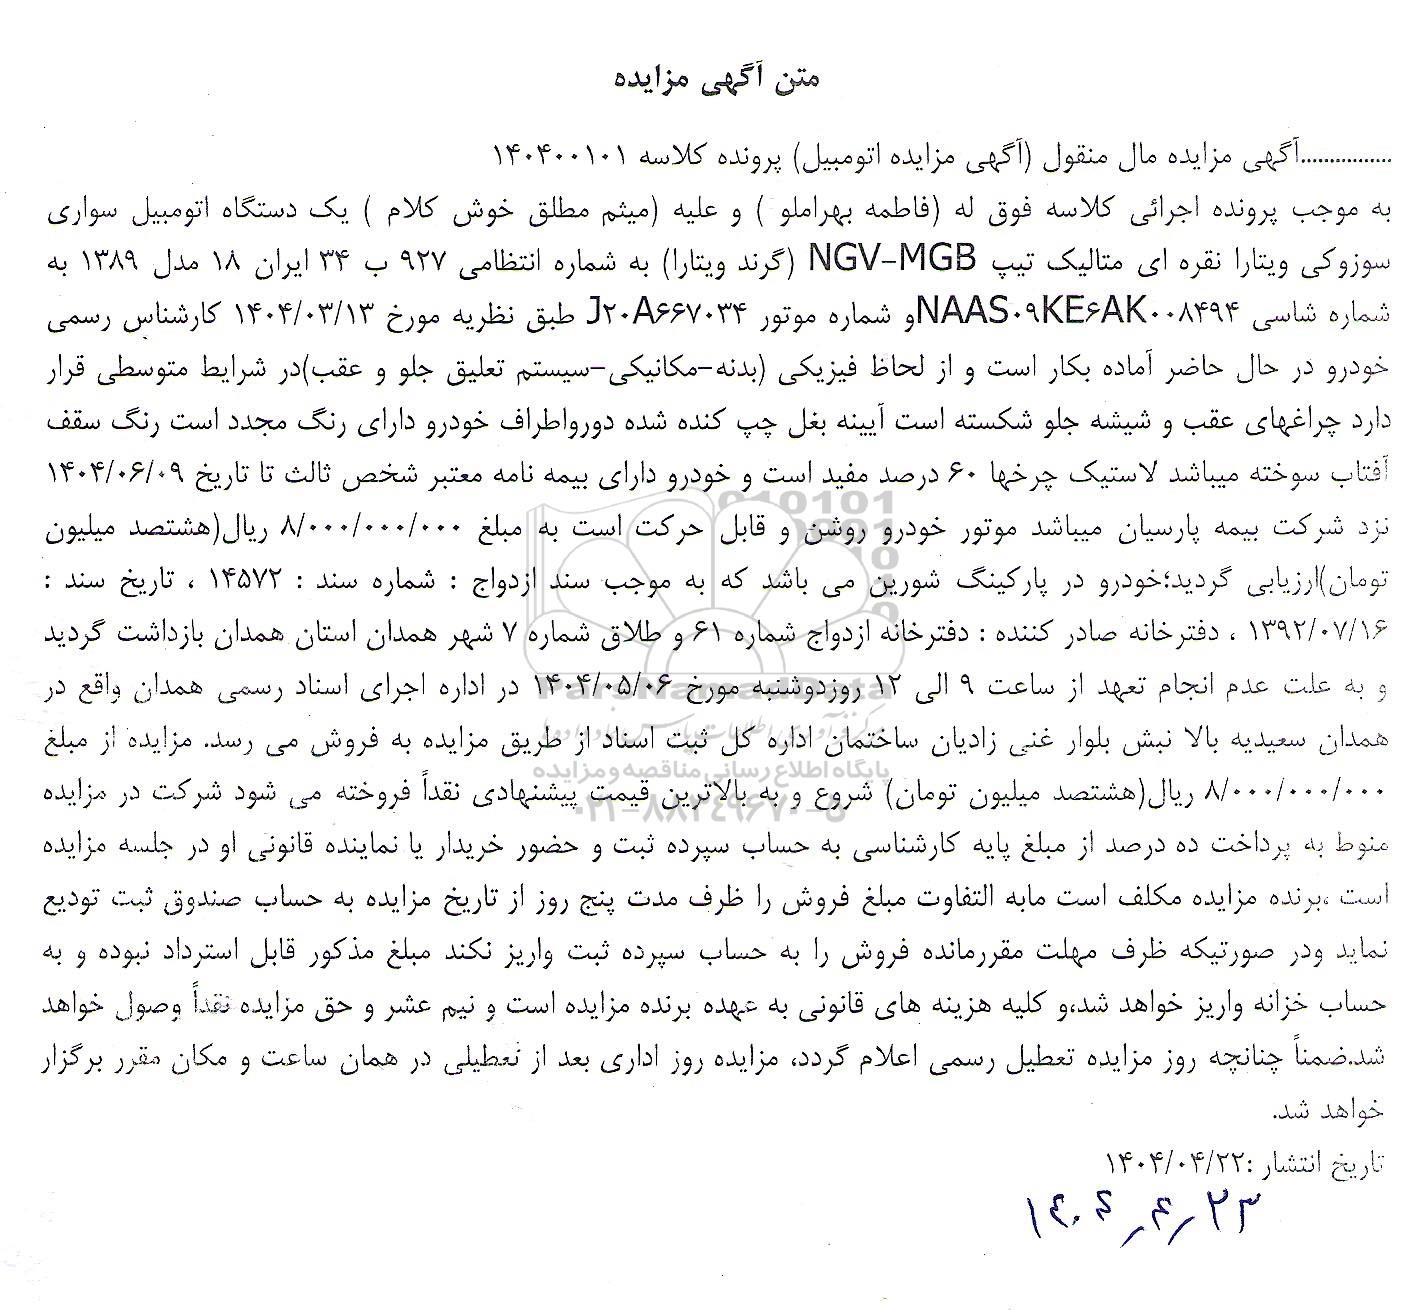 متن آگهی مزایده
................آگهی مزایده مال منقول (آگهی مزایده اتومبیل) پرونده کلاسه ۱۴۰۴۰۰۱۰۱
به موجب پرونده اجرائی کلاسه فوق له (فاطمه بهراملو ) و علیه (میثم مطلق خوش کلام ) یک دستگاه اتومبیل سواری
سوزوکی ویتارا نقره ای متالیک تیپ NGV-MGB (گرند ویتارا) به شماره انتظامی ۹۲۷ ب ۳۴ ایران ۱۸ مدل ۱۳۸۹ به
شماره شاسی NAAS۰۹KE۶AK۰۰۸۴۹۴و شماره موتور J۲۰A۶۶۷۰۳۴ طبق نظریه مورخ ۱۴۰۴/۰۳/۱۳ کارشناس رسمی
خودرو در حال حاضر آماده بکار است و از لحاظ فیزیکی (بدنه-مکانیکی-سیستم تعلیق جلو و عقب)در شرایط متوسطی قرار
دارد چراغهای عقب و شیشه جلو شکسته است آیینه بغل چپ کنده شده دورواطراف خودرو دارای رنگ مجدد است رنگ سقف
آفتاب سوخته میباشد لاستیک چرخها ۶۰ درصد مفید است و خودرو دارای بیمه نامه معتبر شخص ثالث تا تاریخ ۱۴۰۴/۰۶/۰۹
نزد شرکت بیمه پارسیان میباشد موتور خودرو روشن و قابل حرکت است به مبلغ ۸/۰۰۰/۰۰۰/۰۰۰ ریال(هشتصد میلیون
تومان)ارزیابی گردید؛خودرو در پارکینگ شورین می باشد که به موجب سند ازدواج : شماره سند : ۱۴۵۷۲ ، تاریخ سند :
۱۳۹۲/۰۷/۱۶ ، دفترخانه صادر کننده : دفترخانه ازدواج شماره ۶۱ و طلاق شماره ۷ شهر همدان استان همدان بازداشت گردید
و به علت عدم انجام تعهد از ساعت ۹ الی ۱۲ روزدوشنبه مورخ ۱۴۰۴/۰۵/۰۶ در اداره اجرای اسناد رسمی همدان واقع در
همدان سعیدیه بالا نبش بلوار غنی زادیان ساختمان اداره کل ثبت اسناد از طریق مزایده به فروش می رسد. مزایده از مبلغ
۸/۰۰۰/۰۰۰/۰۰۰ ریال(هشتصد میلیون تومان) شروع و به بالاترین قیمت پیشنهادی نقداً فروخته می شود شرکت در مزایده
منوط به پرداخت ده درصد از مبلغ پایه کارشناسی به حساب سپرده ثبت و حضور خریدار یا نماینده قانونی او در جلسه مزایده
است ،برنده مزایده مکلف است مابه التفاوت مبلغ فروش را ظرف مدت پنج روز از تاریخ مزایده به حساب صندوق ثبت تودیع
نماید ودر صورتیکه ظرف مهلت مقررمانده فروش را به حساب سپرده ثبت واریز نکند مبلغ مذکور قابل استرداد نبوده و به
حساب خزانه واریز خواهد شد،و کلیه هزینه های قانونی به عهده برنده مزایده است و نیم عشر و حق مزایده نقداً وصول خواهد
شد.ضمناً چنانچه روز مزایده تعطیل رسمی اعلام گردد، مزایده روز اداری بعد از تعطیلی در همان ساعت و مکان مقرر برگزار
خواهد شد.
تاریخ انتشار :۱۴۰۴/۰۴/۲۲
۱۴۰۴/۴/۲۳
ParsNamadData
پایگاه اطلاع رسانی مناقصه و مزایده
۰۲۱-۸۸۳۴۹۶۷۰-۵